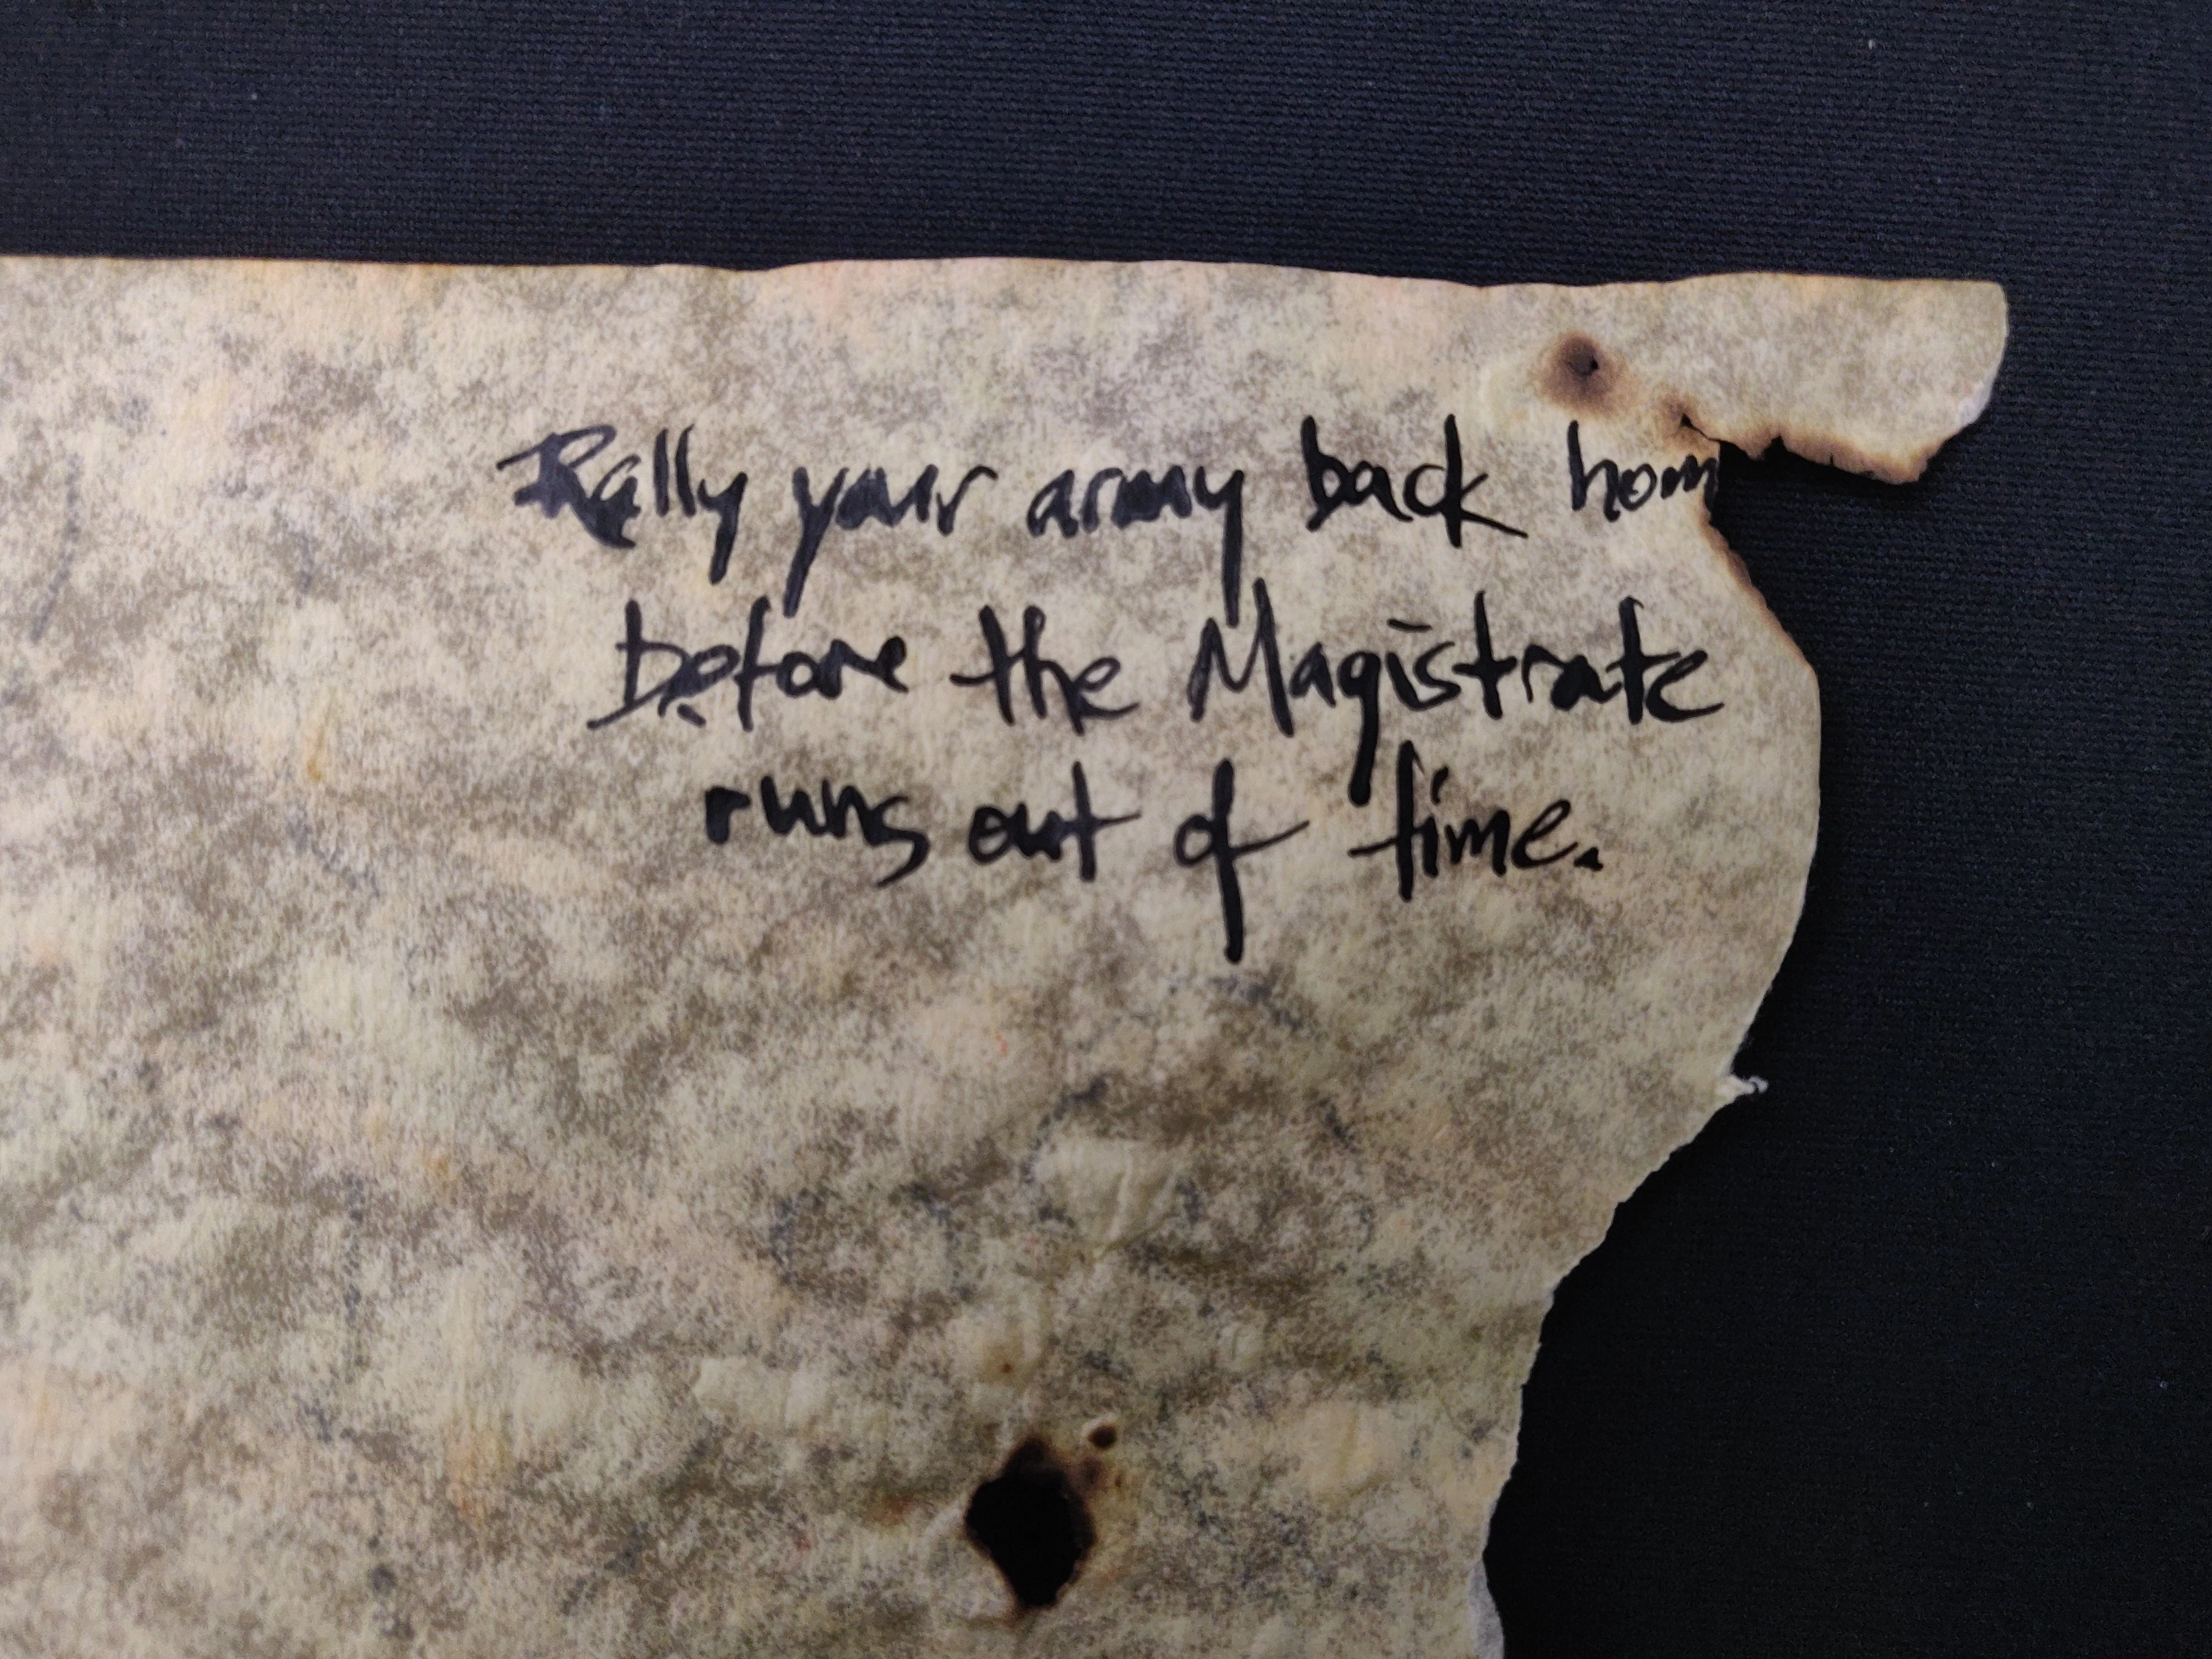 Rally your army back hom
before the Magistrate
runs out of time.